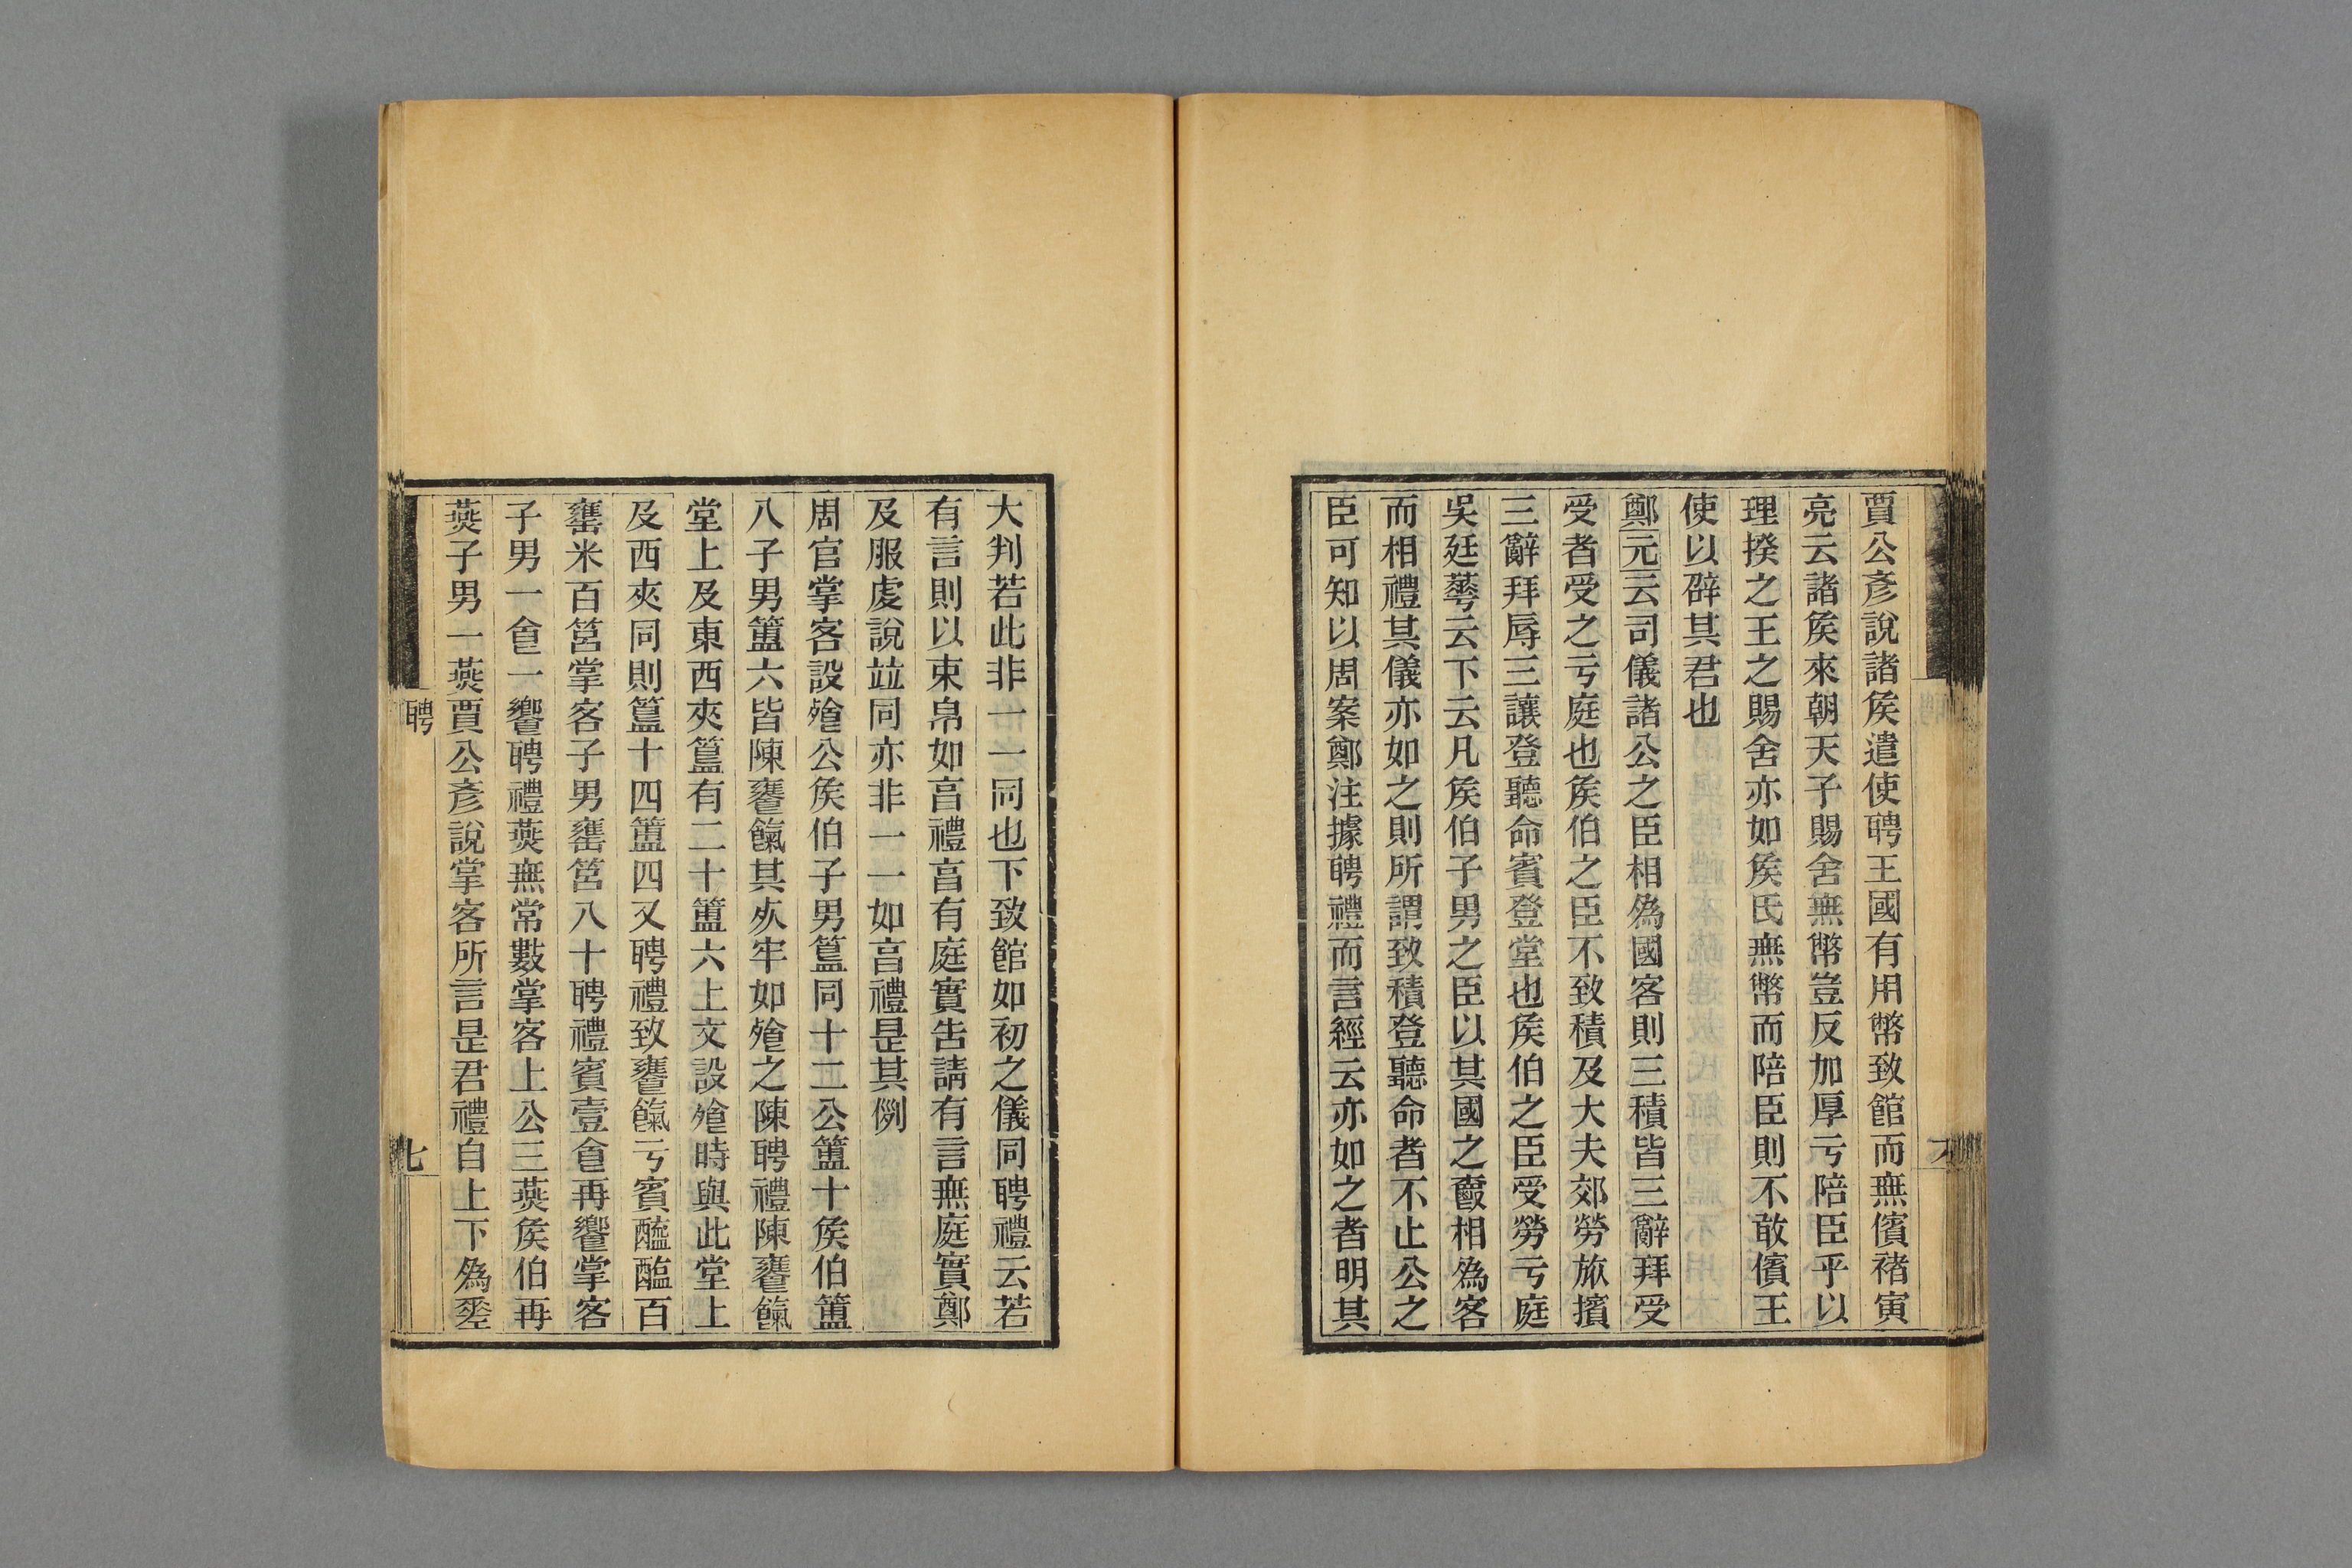 賈公彥說諸矦遣使聘王國有用幣致館而無儐褚寅
亮云諸矦來朝天子賜舍無幣豈反加厚亏陪臣乎以
理揆之王之賜舍亦如矦氏無幣而陪臣則不敢儐王
使以辟其君也
鄭元云司儀諸公之臣相爲國客則三積皆三辭拜受
受者受之亏庭也矦伯之臣不致積及大夫郊勞旅擯
三辭拜辱三讓登聽命賓登堂也矦伯之臣受勞亏庭
吳廷蕐云下云凡矦伯子男之臣以其國之爵相爲客
而相禮其儀亦如之則所謂致積登聽命者不止公之
臣可知以周案鄭注據聘禮而言經云亦如之者明其
大判若此非一一同也下致館如初之儀同聘禮云若
有言則以束帛如亯禮亯有庭實吿請有言無庭實鄭
及服虔說竝同亦非一一如亯禮是其例
周官掌客設飧公矦伯子男簋同十二公簠十矦伯簠
八子男簠六皆陳饔餼其𣦸牢如飧之陳聘禮陳饔餼
堂上及東西夾簋有二十簠六上文設飧時與此堂上
及西夾同則簋十四簠四又聘禮致饔餼亏賓醯醢百
罋米百筥掌客子男罋筥八十聘禮賓壹食再饗掌客
子男一食一饗聘禮燕無常數掌客上公三燕矦伯再
燕子男一燕賈公彥說掌客所言是君禮自上下爲𢀩
聘
七